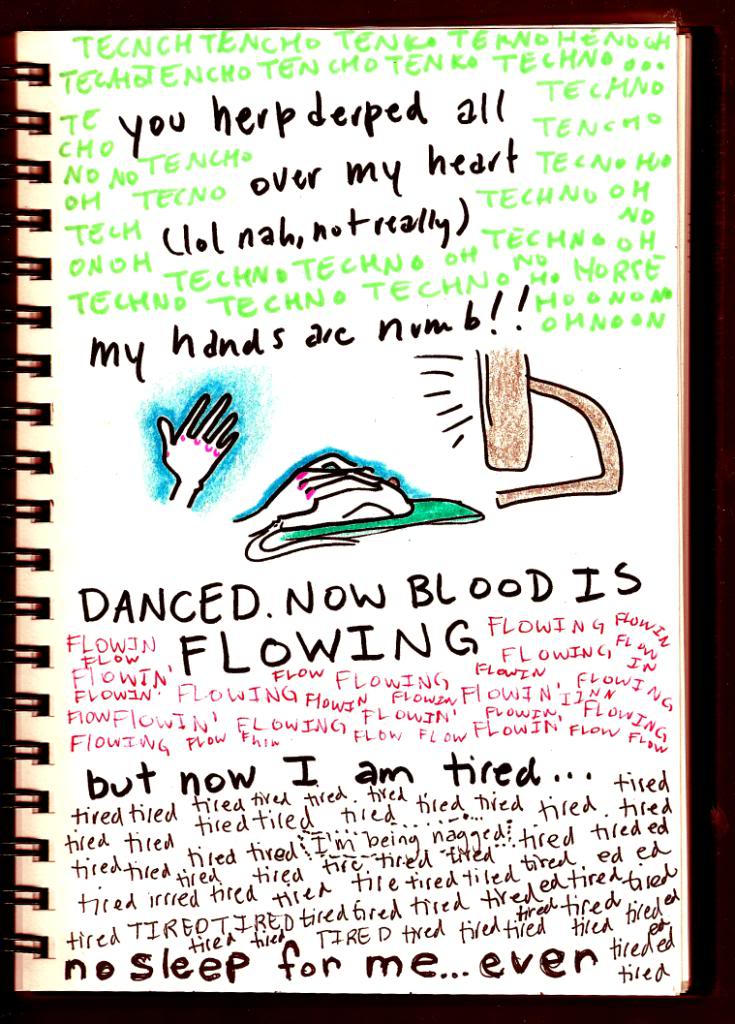 TECNCH TENCHO TENKO TEKNO HENOCH
TECHOTENCHO TEN CHO TENKO TECHNO...
TECHNO
TE
CHO
you herp derped all
TENCHO
NO NO TENCHO
over my heart
TECNO HO
OH TECNO
TECHNO OH
NO
TECH
(lol nah, not really)
TECHNO OH
ONOH TECHNO TECHNO OH NO HORSE
TECHNO TECHNO TECHNO HO HOONONO
my hands are numb!!
OHNOON
DANCED. NOW BLOOD IS
FLOWING
FLOWIN
FLOW
FLOWING FLOWIN
FLOWIN' FLOW FLOWING FLOWIN FLOWING FLOW IN
FLOWIN' FLOWING FLOWIN FLOWIN FLOWIN' IINN FLOWING
FLOWFLOWIN' FLOWING FLOWIN' FLOWIN. FLOWING
FLOWING FLOW FLOW FLOW FLOWIN' FLOW FLOW
but now I am tired...
tired
tired tired tired tired tired. tired
tired tired tired tired tired tired tired tired. tired
tired tired tired tired I'm being nagged! tired tired ed
tired tire tired tired tired. ed ed
tired irred tired tired tire tired tired tired ed tired tired
tired TIRED TIRED tired tired tired tired tired tired tired
tired tired TIRED tired tired tired tired tired ed
no sleep for me... even
tired ed
tired